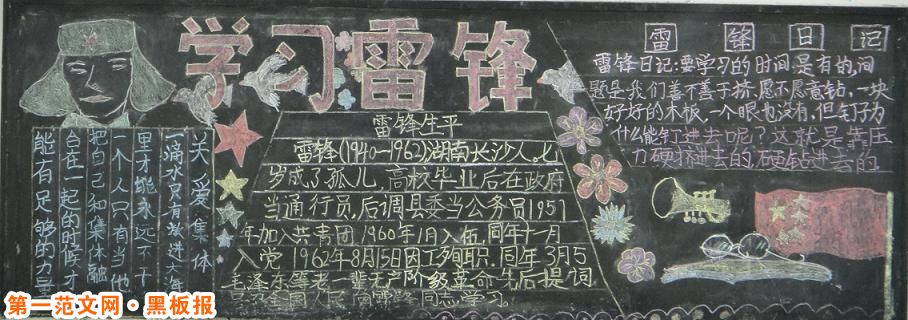 学习雷锋
关爱集体
一滴水只有放进大海
里才能永远不干
一个人只有当他
把自己和集体融
合在一起的时候才
能有足够的力量
雷锋生平
雷锋(1940-1962)湖南长沙人,七
岁成了孤儿,高校毕业后在政府
当通行员,后调县委当公务员1957
年加入共青团 1960年1月入伍,同年十一月
入党 1962年8月15日因工殉职.同年3月5
毛泽东等老一辈无产阶级革命先后提词
号召全国人民向雷锋同志学习.
雷锋日记
雷锋日记:要学习的时间是有的,问
题是我们善不善于挤,愿不愿意钻,一块
好好的木板,一个眼也没有,但钉子为
什么能钉进去呢?这就是靠压
力硬挤进去的,硬钻进去的
第一范文网·黑板报